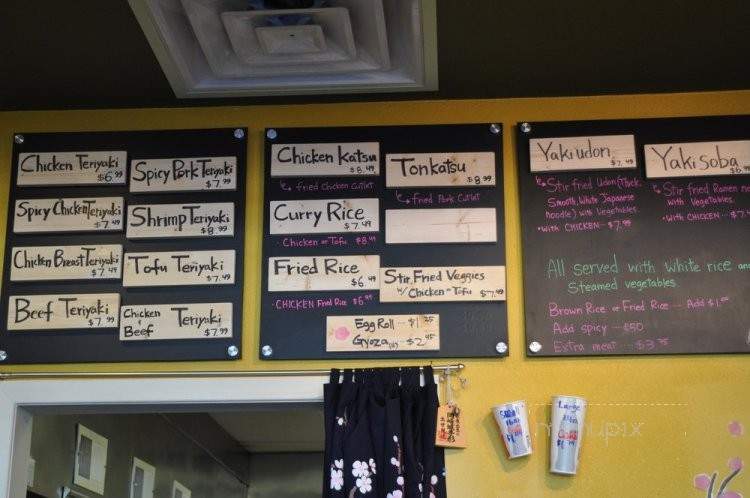 Chicken Teriyaki
$6.99
Spicy Pork Teriyaki
$7.99
Spicy Chicken Teriyaki
$7.49
Shrimp Teriyaki
$8.99
Chicken Breast Teriyaki
$7.49
Tofu Teriyaki
$7.49
Beef Teriyaki
$7.99
Chicken Beef Teriyaki
$7.99
Chicken Katsu
$8.49
fried Chicken Cutlet
Tonkatsu
$8.99
fried Pork Cutlet
Curry Rice
$7.49
- Chicken or Tofu $8.49
Fried Rice
$6.49
- CHICKEN Fried Rice $6.95
Stir Fried Veggies
w/ Chicken or Tofu
Egg Roll --- $1.25
Gyoza --- $2.45
Yakiudon
$7.49
Stir fried Udon (Thick,
Smooth, White Japanese
noodle) with Vegetables.
• WITH CHICKEN -- $7.99
Yakisoba
Stir fried Ramen
with Vegetables.
• WITH CHICKEN --
All served with white rice and
Steamed vegetables.
Brown Rice or Fried Rice -- Add $1.00
Add spicy -- ¢50
Extra meat --- $3.75
Large
menupix